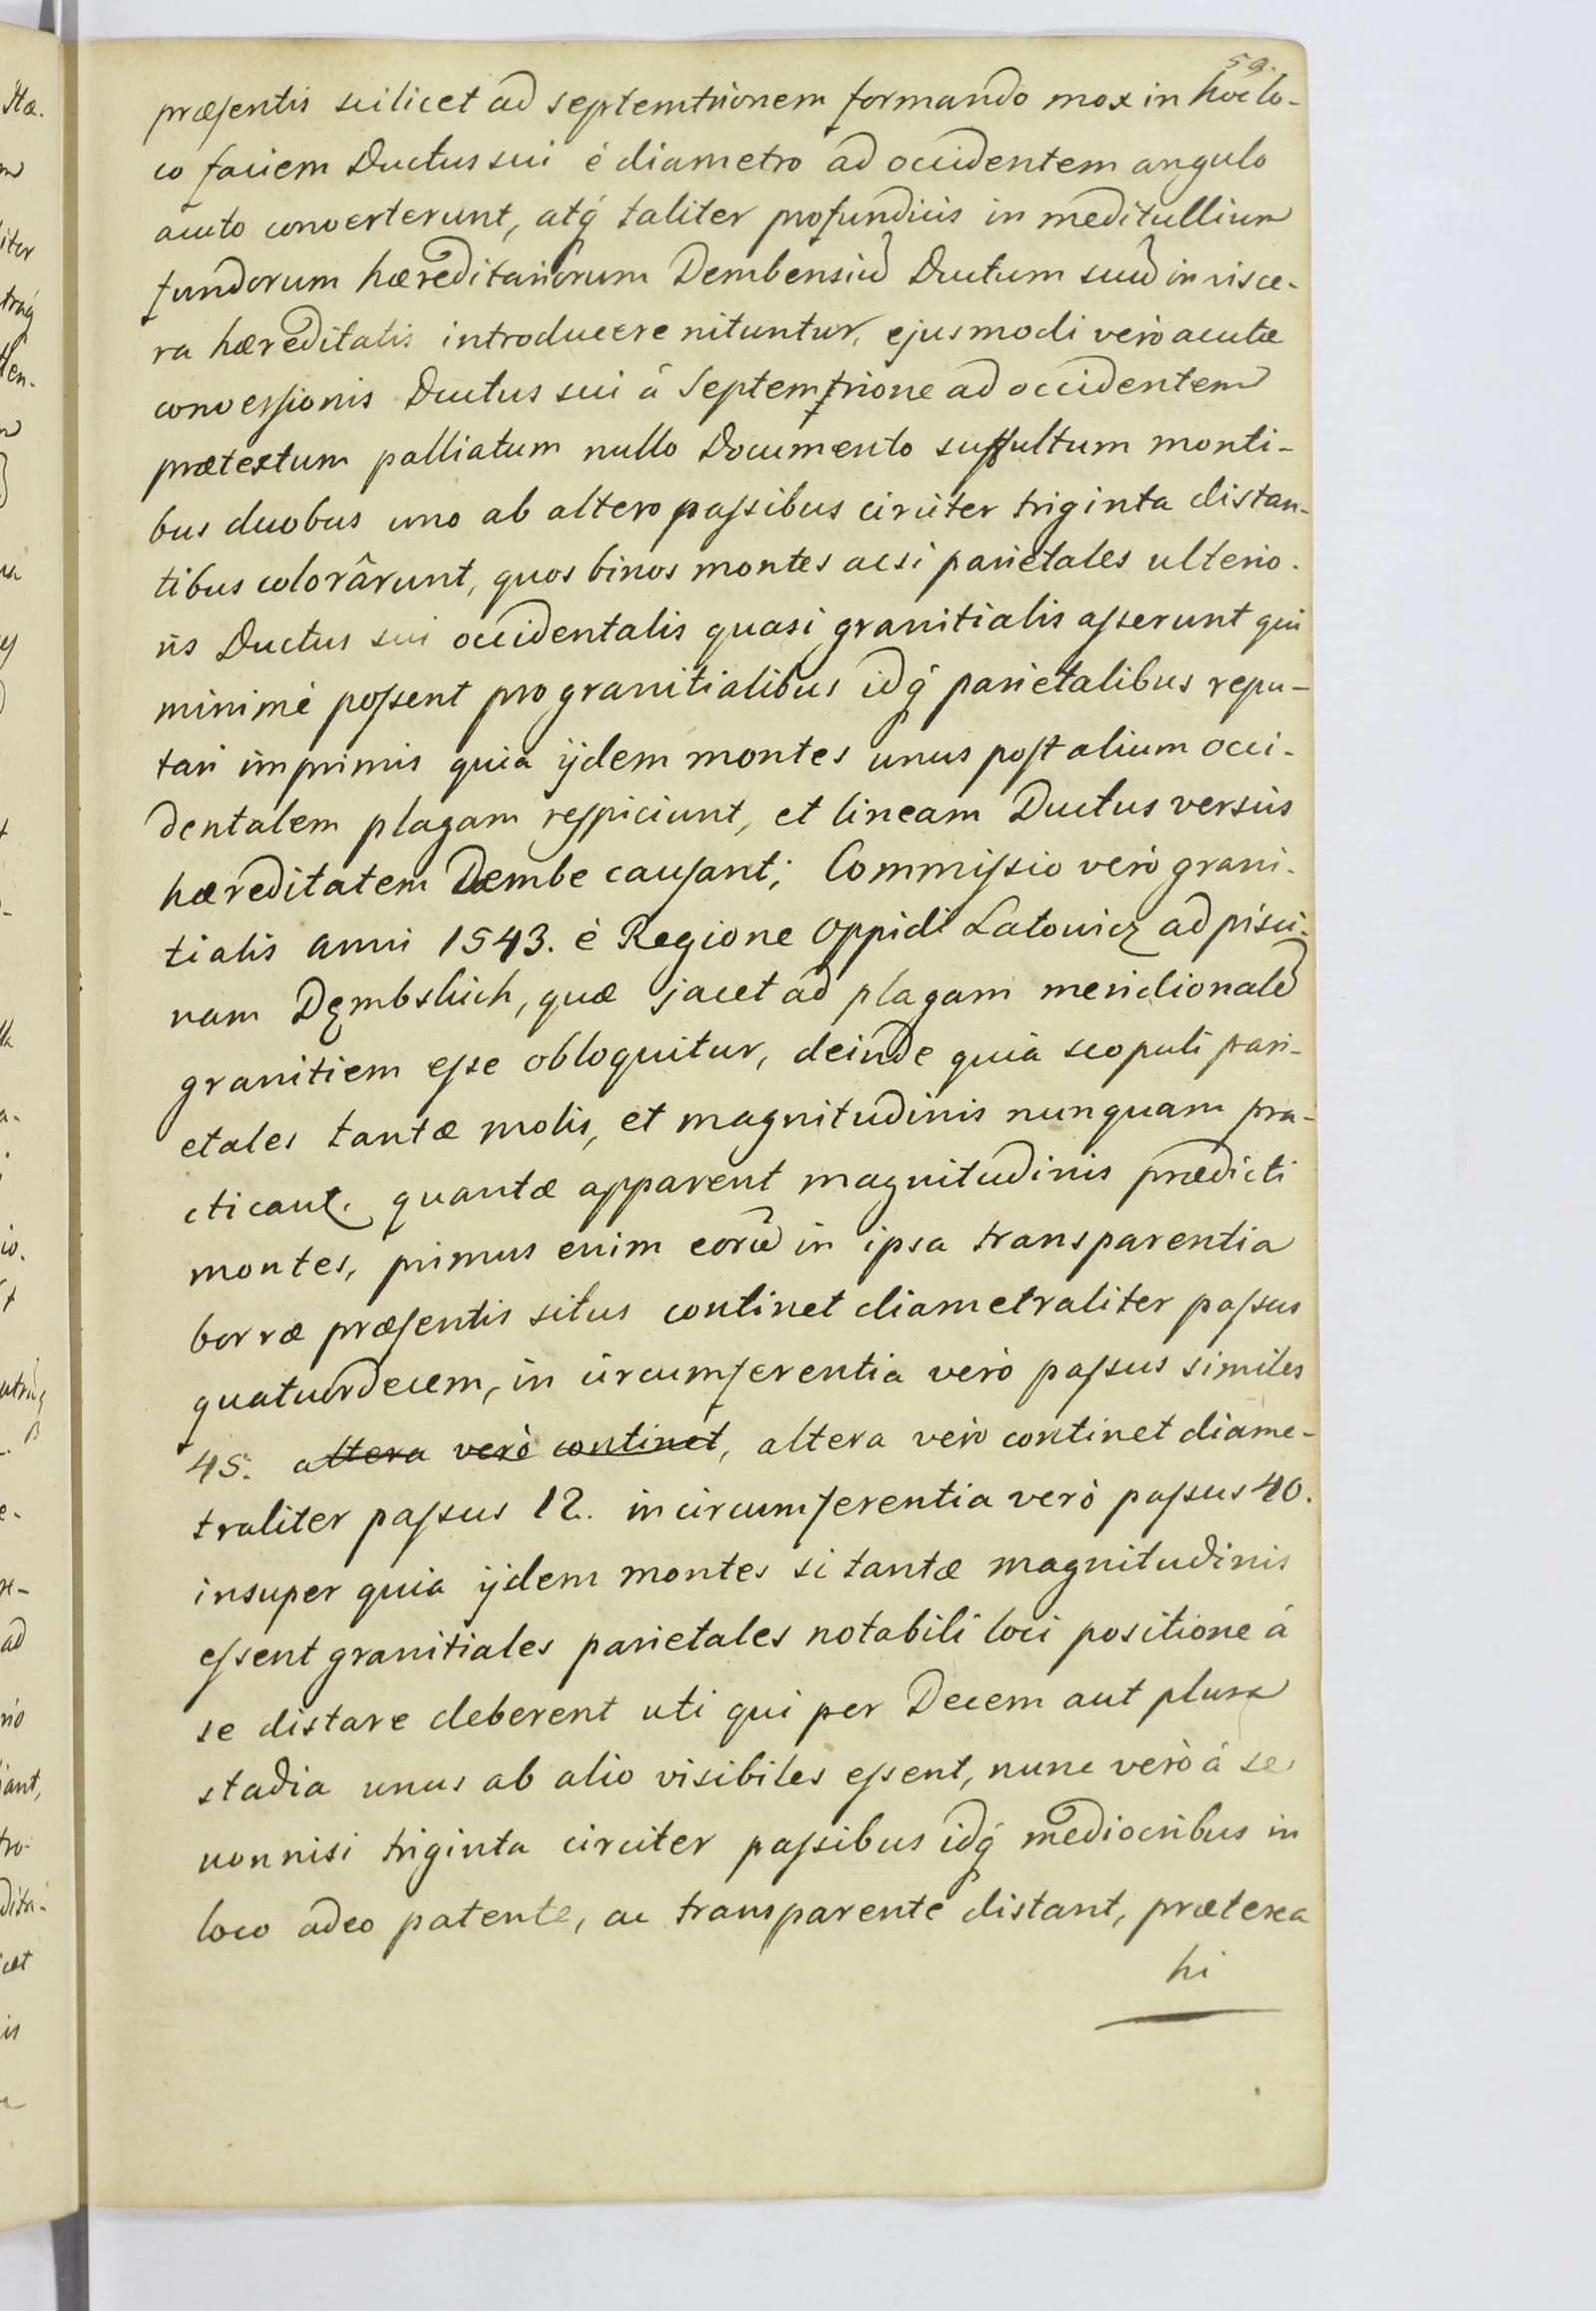 59.
præsentis scilicet ad septemtrionem formando mox in hoc lo-
co faciem Ductus sui è diametro ad occidentem angulo
acuto converterunt, atq́ taliter profundiùs in meditullium
fundorum hæreditariorum Dembensiũ Ductum suũ in visce-
ra hæreditatis introducere nituntur, ejusmodi verò acutæ
conversionis Ductus sui á Septemtrione ad occidentem
prætextum palliatum nullo Documento suffultum monti-
bus duobus uno ab altero passibus circiter triginta distan-
tibus colorârunt, quos binos montes acsi parietales ulterio-
ris Ductus sui occidentalis quasi granitialis asserunt qui
minimè possent pro granitialibus idq́ parietalibus repu-
tari imprimis quia ijdem montes unus post alium occi-
dentalem plagam respiciunt, et lineam Ductus versùs
hæreditatem Dembe causant; Commissio verò grani-
tialis anni 1543. è Regione Oppidi Latowicz ad pisci-
nam Dęmbskich, quæ jacet ad plagam meridionalẽ
granitiem esse obloquitur, deinde quia scopuli pari-
etales tantæ molis, et magnitudinis nunquam pra-
cticant. quantæ apparent magnitudinis prædicti
montes, primus enim eorũ in ipsa transparentia
borræ præsentis situs continet diametraliter passus
quatuordecem, in circumferentia verò passus similes
45. altera verò continet, altera verò continet diame-
traliter passus 12. in circumferentia verò passus 40.
insuper quia ijdem montes si tantæ magnitudinis
essent granitiales parietales notabili loci positione á
se distare deberent uti qui per Decem aut plura
stadia unus ab alio visibiles essent, nunc verò á se
nonnisi triginta circiter passibus idq́ mediocribus in
loco adeo patente, ac transparente distant, præterea
hi